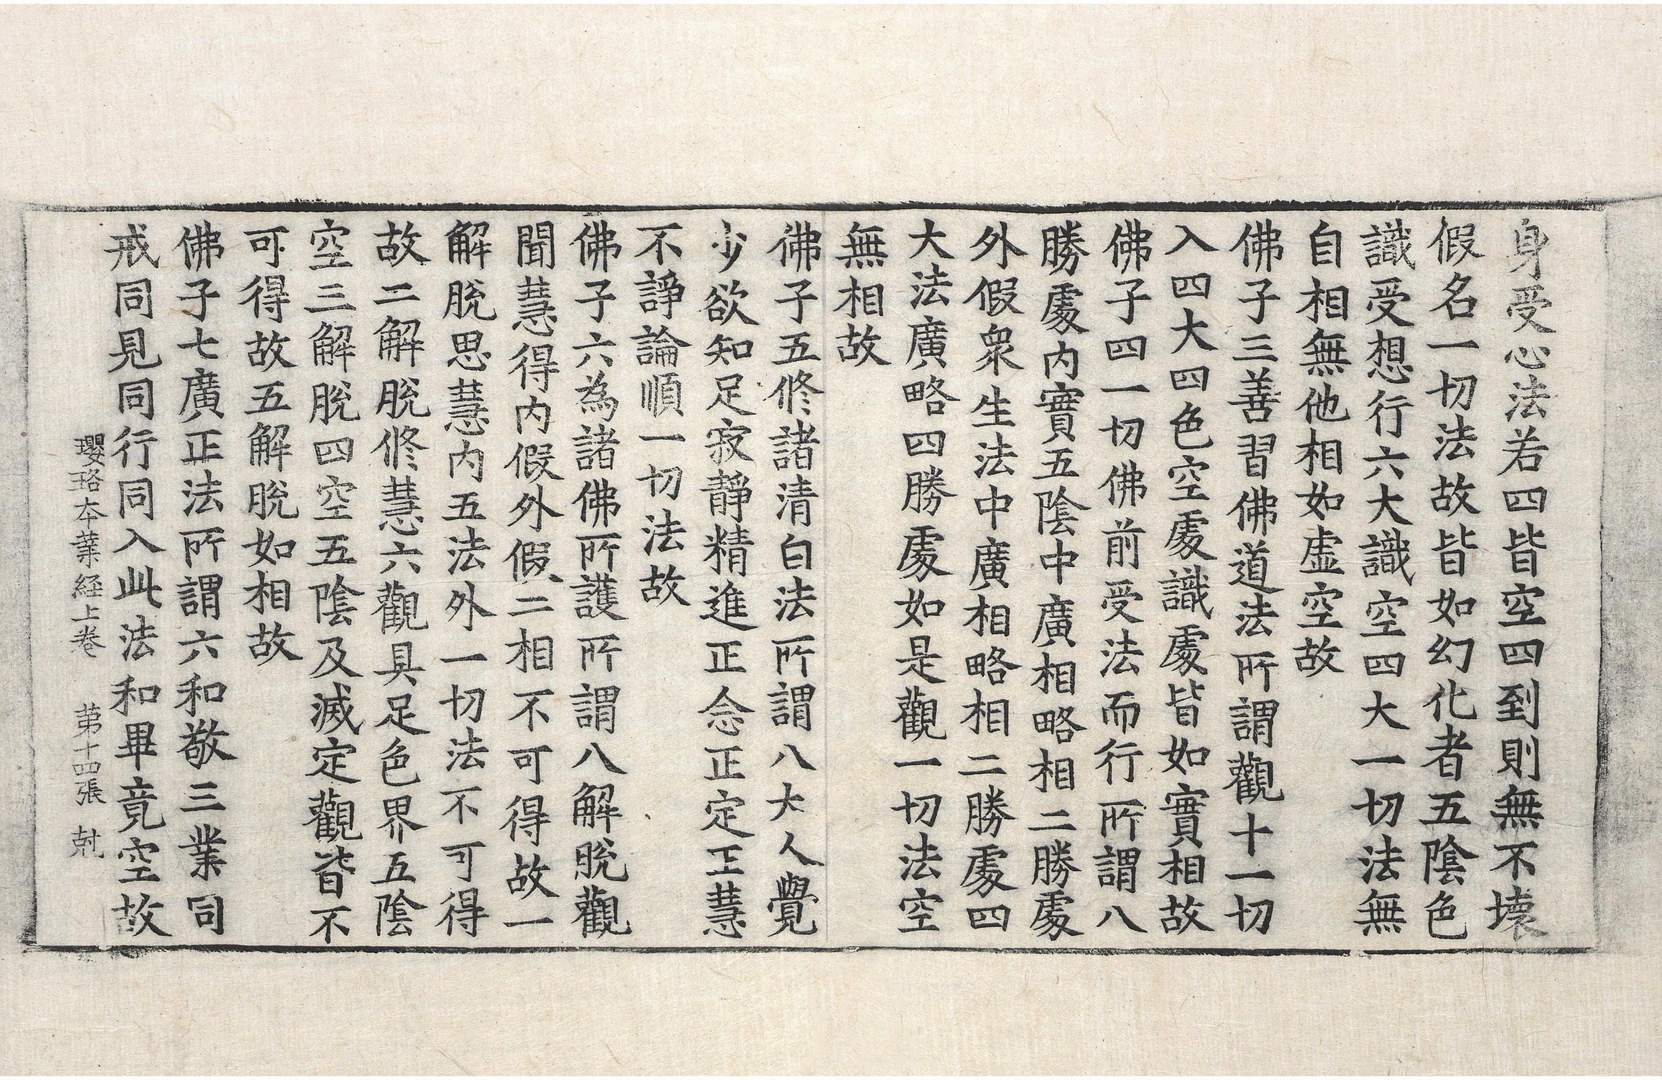 身受心法若四皆空四到則無不壞
假名一切法故皆如幻化者五陰色
識受想行六大識空四大一切法無
自相無他相如虛空故
佛子三善習佛道法所謂觀十一切
入四大四色空處識處皆如實相故
佛子四一切佛前受法而行所謂八
勝處內實五陰中廣相略相二勝處
外假衆生法中廣相略相二勝處四
大法廣略四勝處如是觀一切法空
無相故
佛子五修諸清白法所謂八大人覺
少欲知足寂靜精進正念正定正慧
不諍論順一切法故
佛子六為諸佛所護所謂八解脫觀
聞慧得內假外假二相不可得故一
解脫思慧內五法外一切法不可得
故二解脫修慧六觀具足色界五陰
空三解脫四空五陰及滅定觀皆不
可得故五解脫如相故
佛子七廣正法所謂六和敬三業同
戒同見同行同入此法和畢竟空故
瓔珞本業經上卷 第十四張 尅